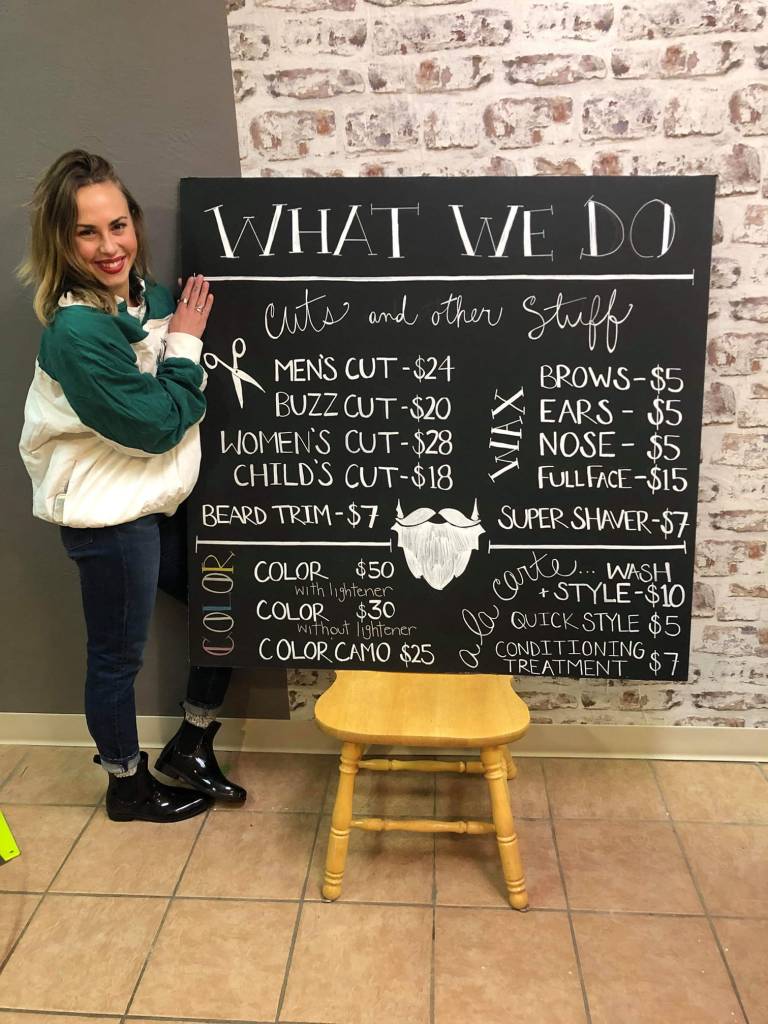 WHAT WE DO
Cuts and other Stuff
MEN'S CUT - $24
BUZZ CUT - $20
WOMEN'S CUT - $28
CHILD'S CUT - $18
BEARD TRIM - $7
WAX
BROWS - $5
EARS - $5
NOSE - $5
FULL FACE - $15
SUPER SHAVER - $7
COLOR
COLOR $50
with lightener
COLOR $30
without lightener
COLOR CAMO $25
a la carte...
WASH
+ STYLE - $10
QUICK STYLE $5
CONDITIONING
TREATMENT $7